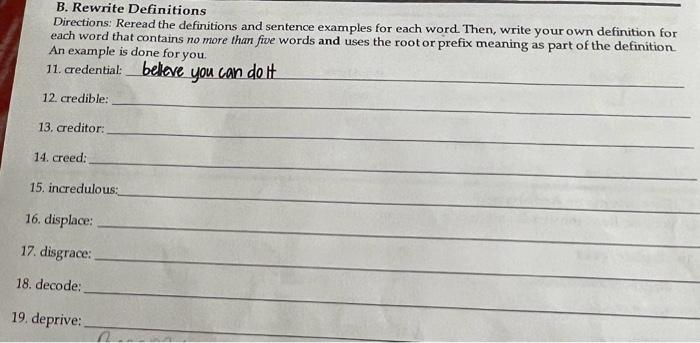 B. Rewrite Definitions
Directions: Reread the definitions and sentence examples for each word. Then, write your own definition for
each word that contains no more than five words and uses the root or prefix meaning as part of the definition.
An example is done for you.
11. credential: believe you can do it
12. credible:
13. creditor:
14. creed:
15. incredulous:
16. displace:
17. disgrace:
18. decode:
19. deprive: